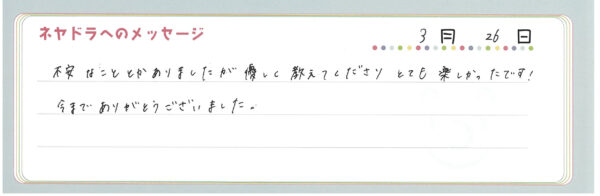 ネヤドラへのメッセージ
3月 26日
不安なこととかありましたが優しく教えてくださり とても楽しかったです!
今までありがとうございました。